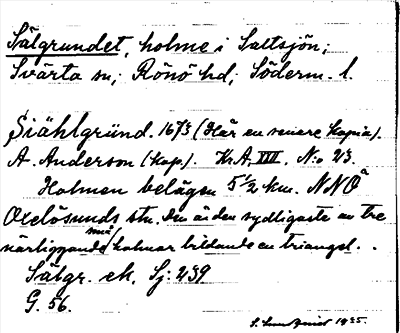 Sälgrundet, holme i Saltsjön;
Svärta sn; Rönö hd; Söderm. l.
Siählgründ. 1673 (Här en senare kopia).
A. Anderson (kop). K.A. XVII. N:o 23.
Holmen belägen 5 1/2 km. NNO å
Oxelösunds stn. Den är den sydligaste av tre
närliggande små holmar bildande en triangel.
Sälgr. ek. Sj: 239
G. 56.
1935.